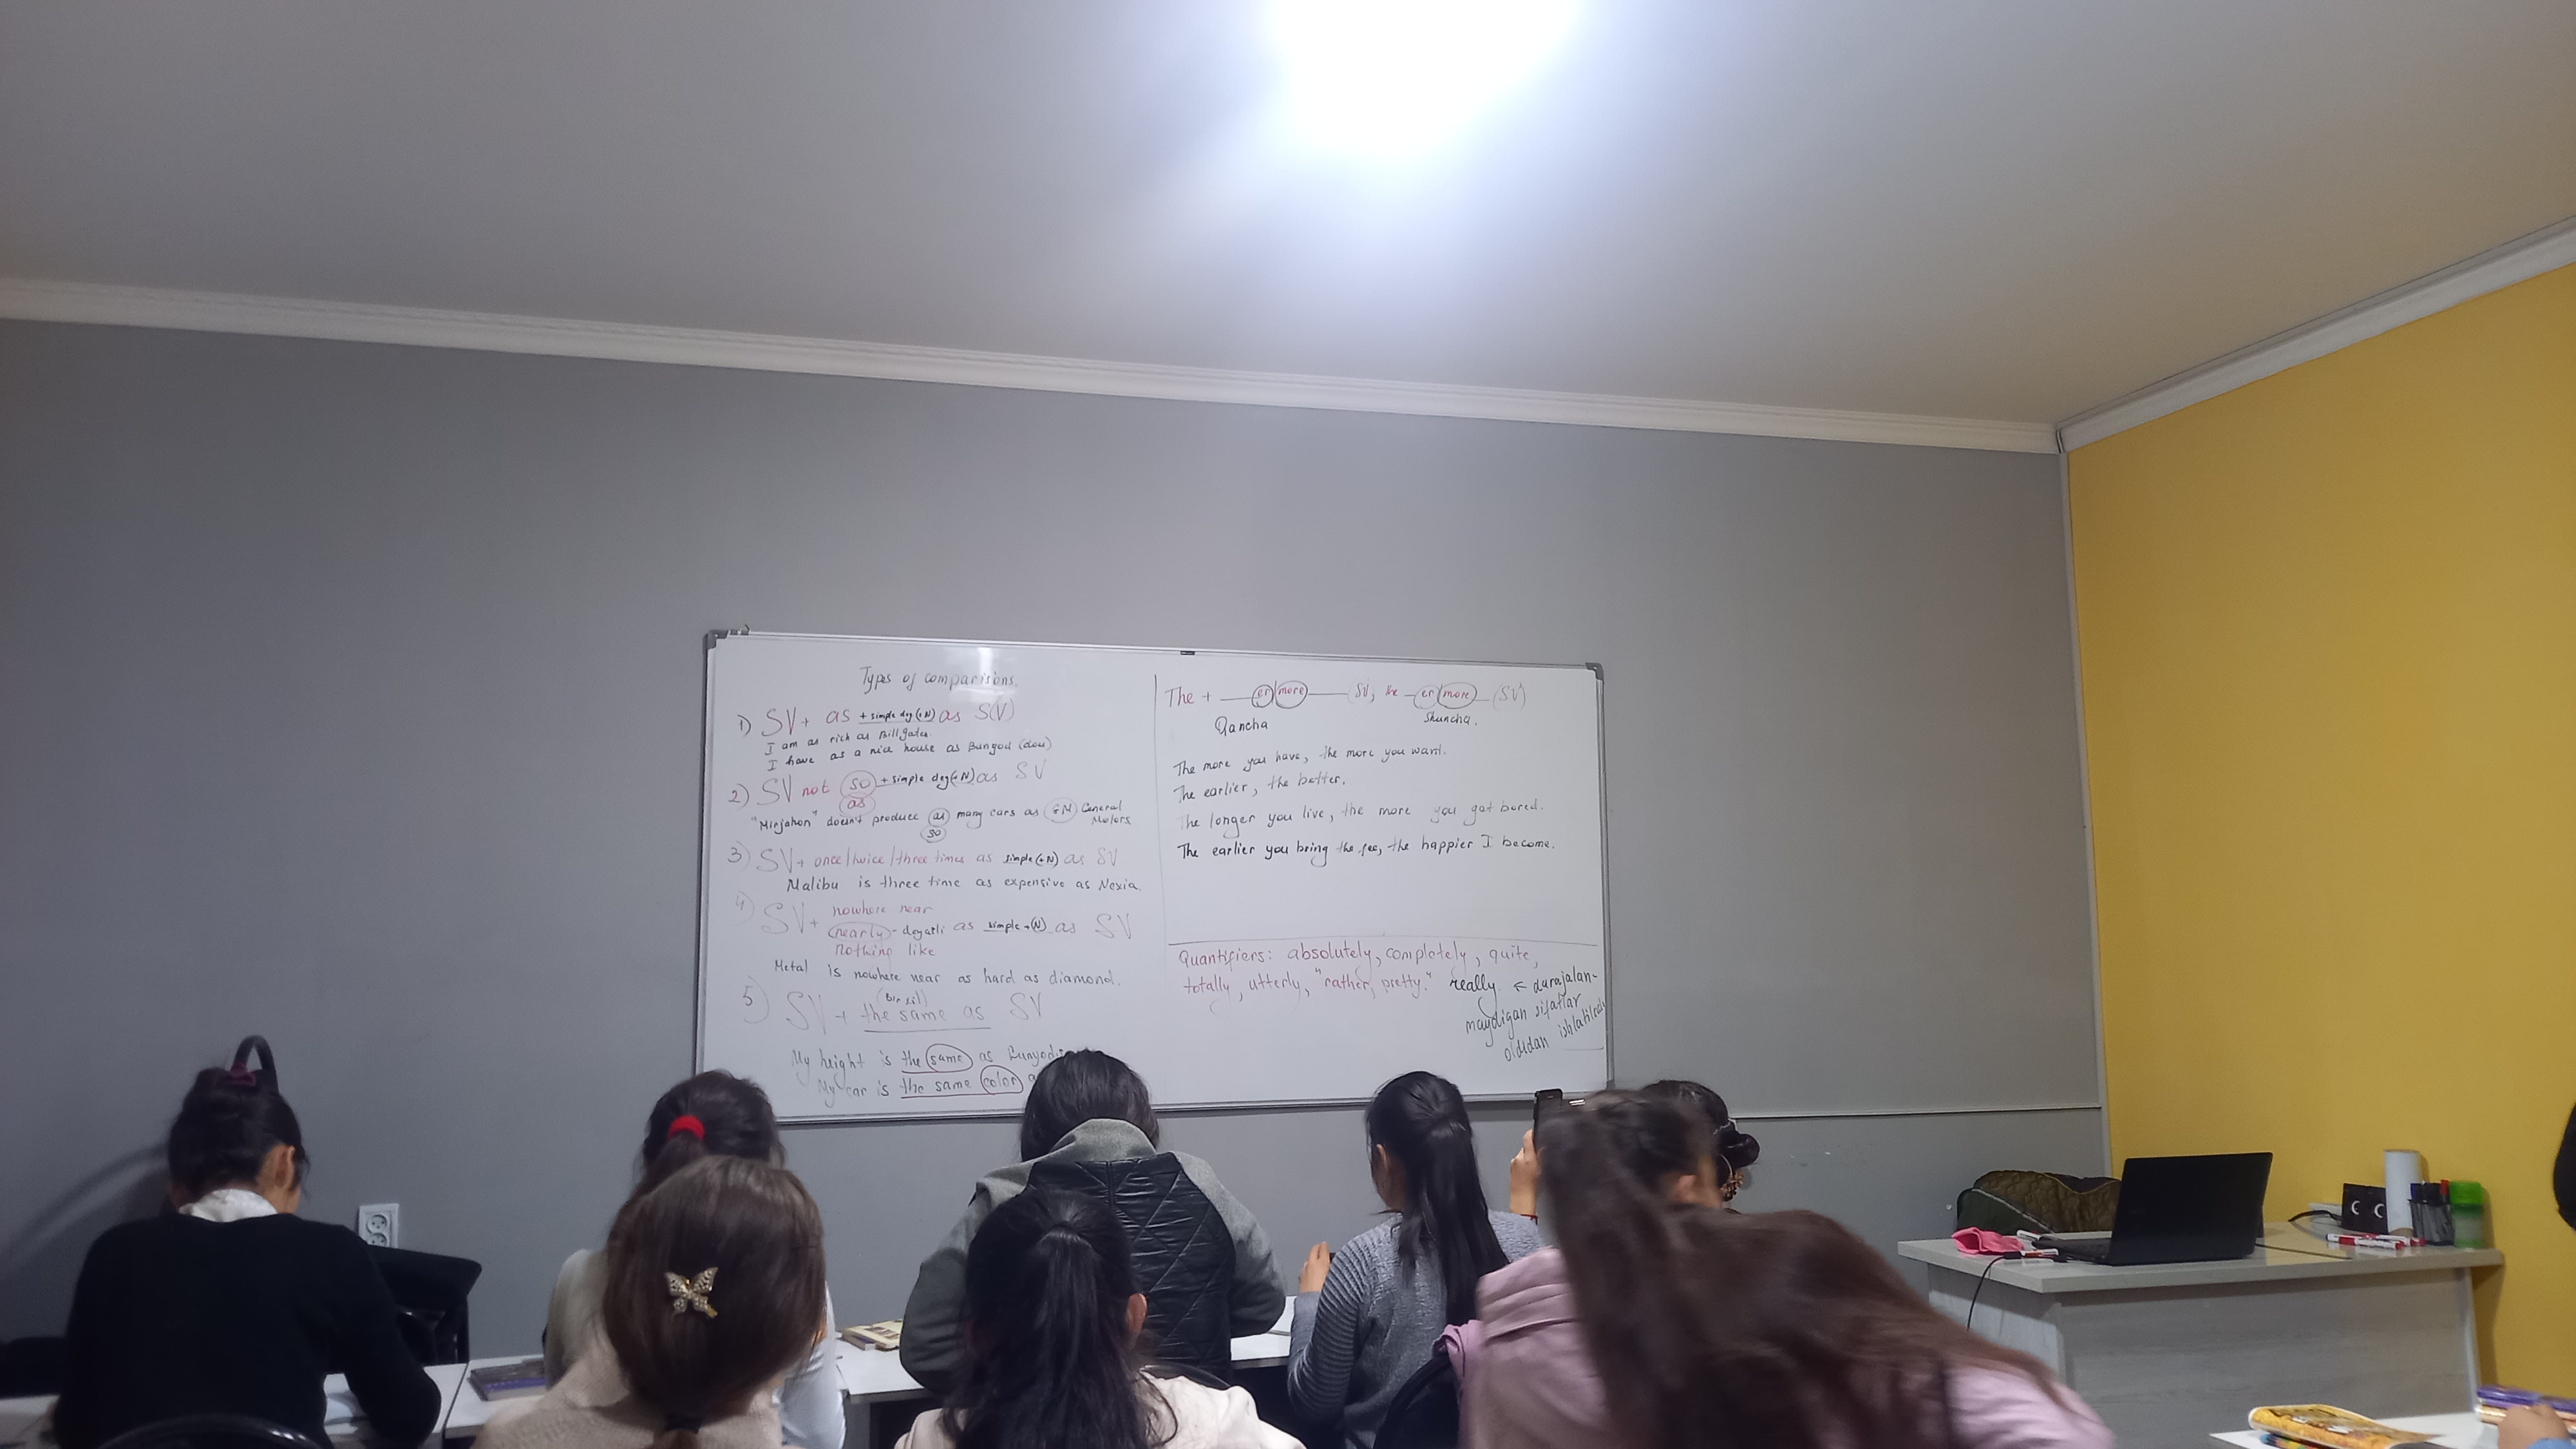 Types of comparisons.
1) SV + as + simple deg (+N) as S(V)
I am as rich as Bill Gates.
I have as a nice house as Bunyod (does)
2) SV not so + simple deg (+N) as SV
as
"Mirjahon" doesn't produce as many cars as GM General
so
Motors
3) SV + once/twice/three times as simple (+N) as SV
Malibu is three time as expensive as Nexia.
4) SV + nowhere near
nearly - deyarli as simple + (N) as SV
nothing like
Metal is nowhere near as hard as diamond.
5) SV + the same as SV
(Bir xil)
My height is the same as
My car is the same color
The + er/more (SV), the er/more (SV)
Qancha Shuncha.
The more you have, the more you want.
The earlier, the better.
The longer you live, the more you get bored.
The earlier you bring the fee, the happier I become.
Quantifiers: absolutely, completely, quite,
totally, utterly, "rather, pretty." really ← darajalan-
maydigan sifatlar
oldidan ishlatiladi